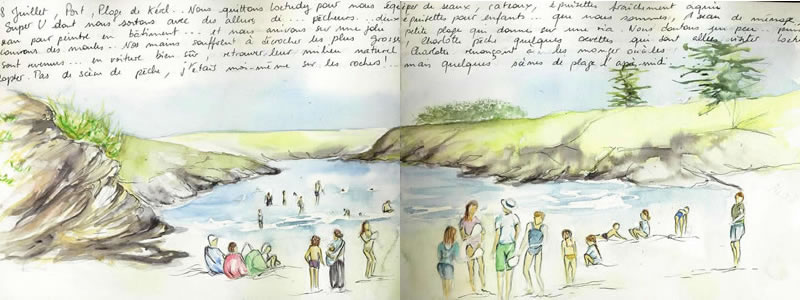 8 Juillet, Port, Plage de Kérel... Nous quittons Loctudy pour nous équiper de seaux, rateaux, épuisettes fraîchement acquis
Super U dont nous sortons avec des allures de... pêcheurs... deux épuisettes pour enfants... que nous sommes, 1 seau de ménage,
seau pour peintre en bâtiment... et nous arrivons sur une jolie petite plage qui donne sur une ria. Nous doutons un peu... puis
découvrons des moules... Nos mains souffrent à décrocher les plus grosses, Charlotte pêche quelques crevettes qui sont allées visiter
sont revenues... en voiture bien sûr, retrouver leur milieu naturel Charlotte renonçant à... les manger crues
adopter. Pas de scène de pêche, j'étais moi-même sur les rochers!... mais quelques scènes de plage l'après-midi...